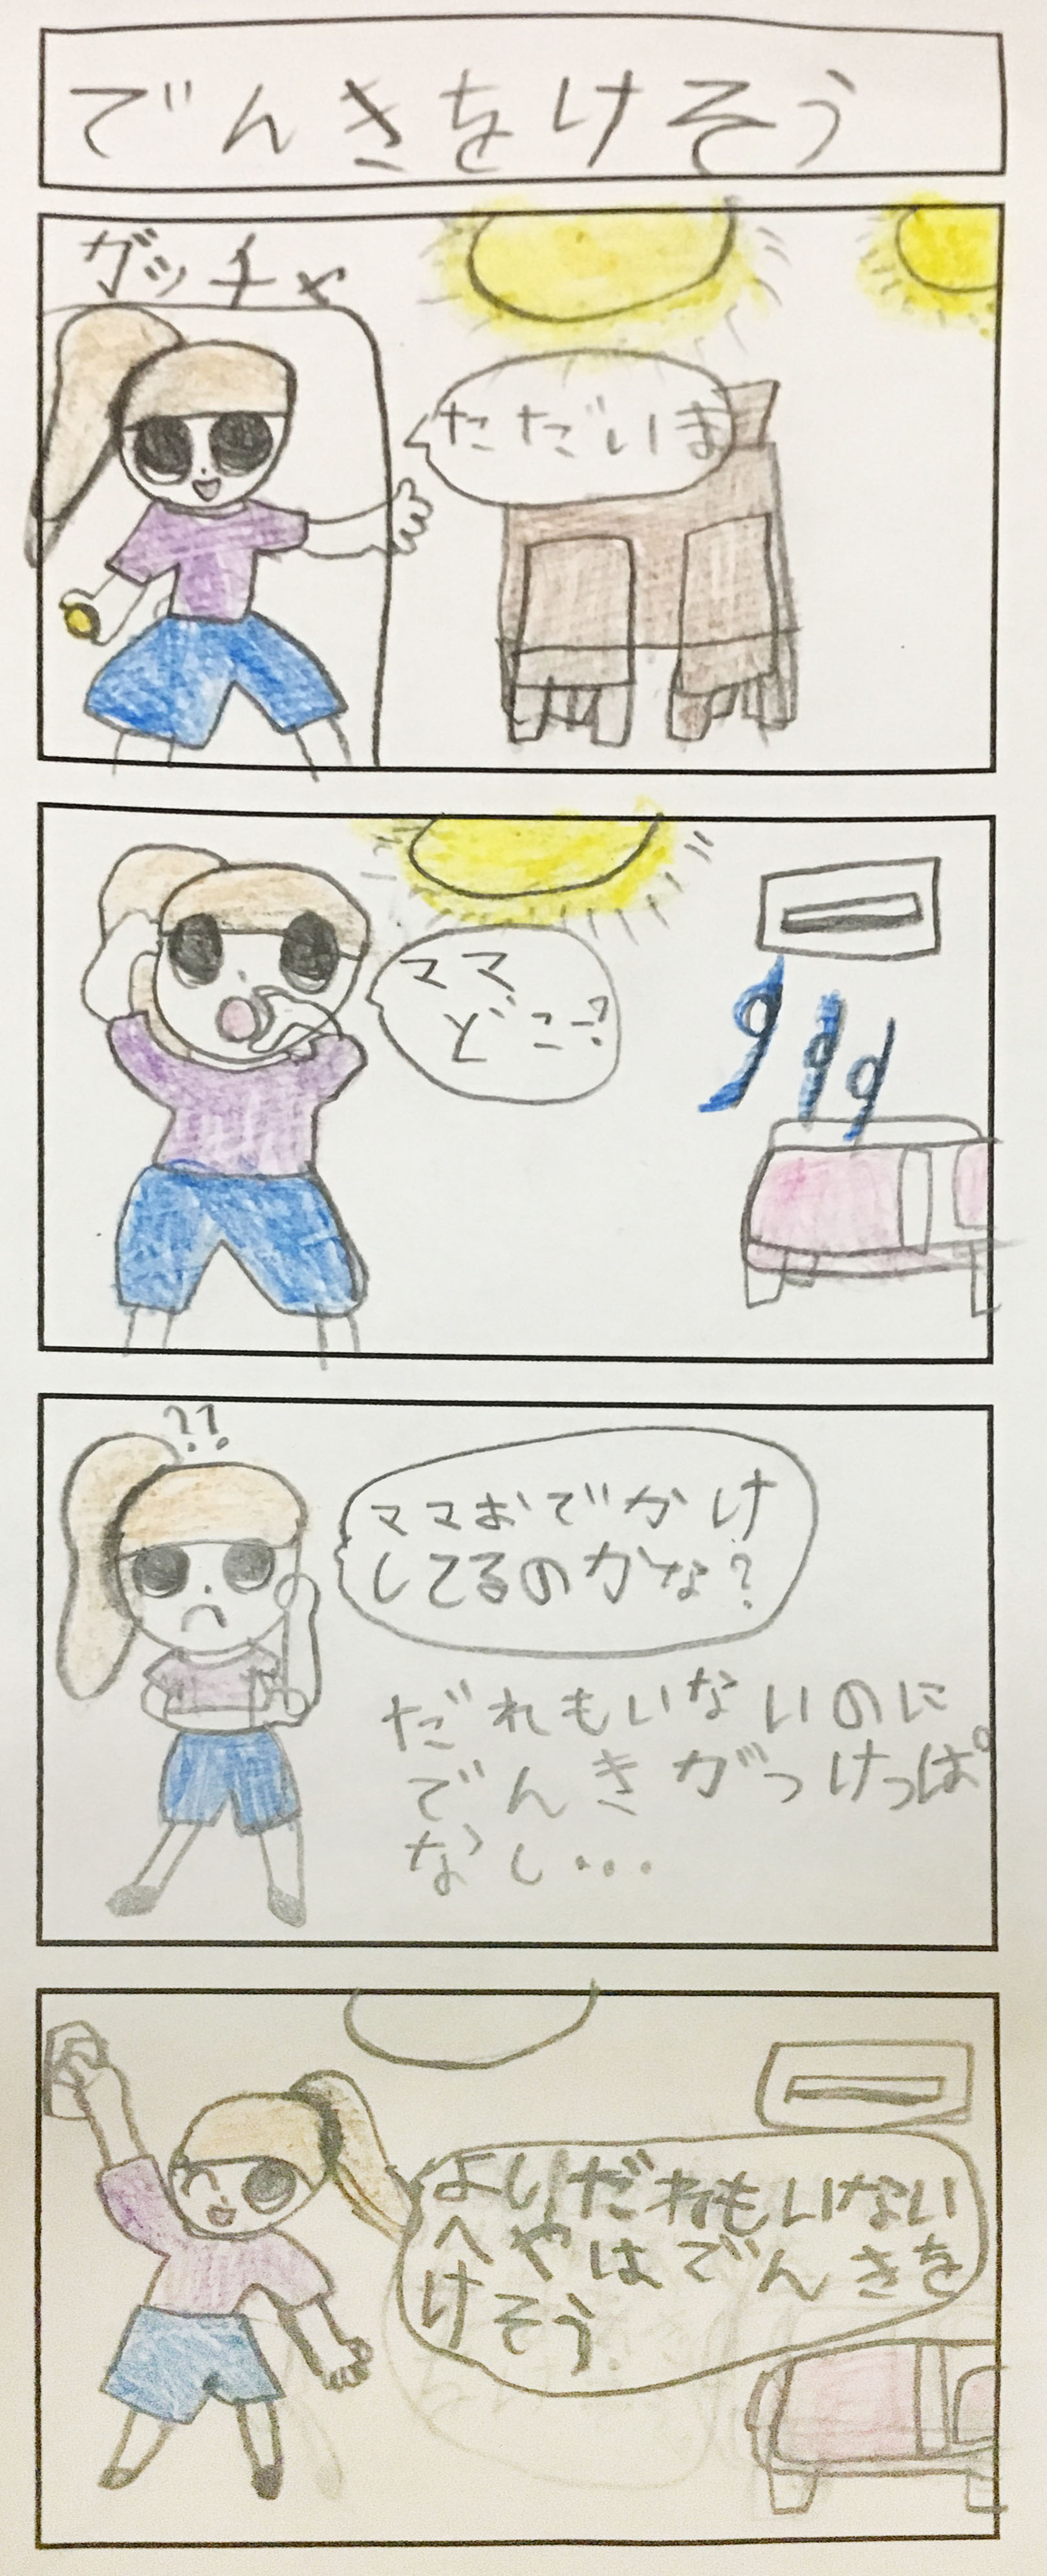 でんきをけそう
ガッチャ
ただいま
ママ
どこ?
??
ママおでかけ
してるのかな?
だれもいないのに
でんきがつけっぱ
なし...
よし,だれもいない
へやはでんきを
けそう